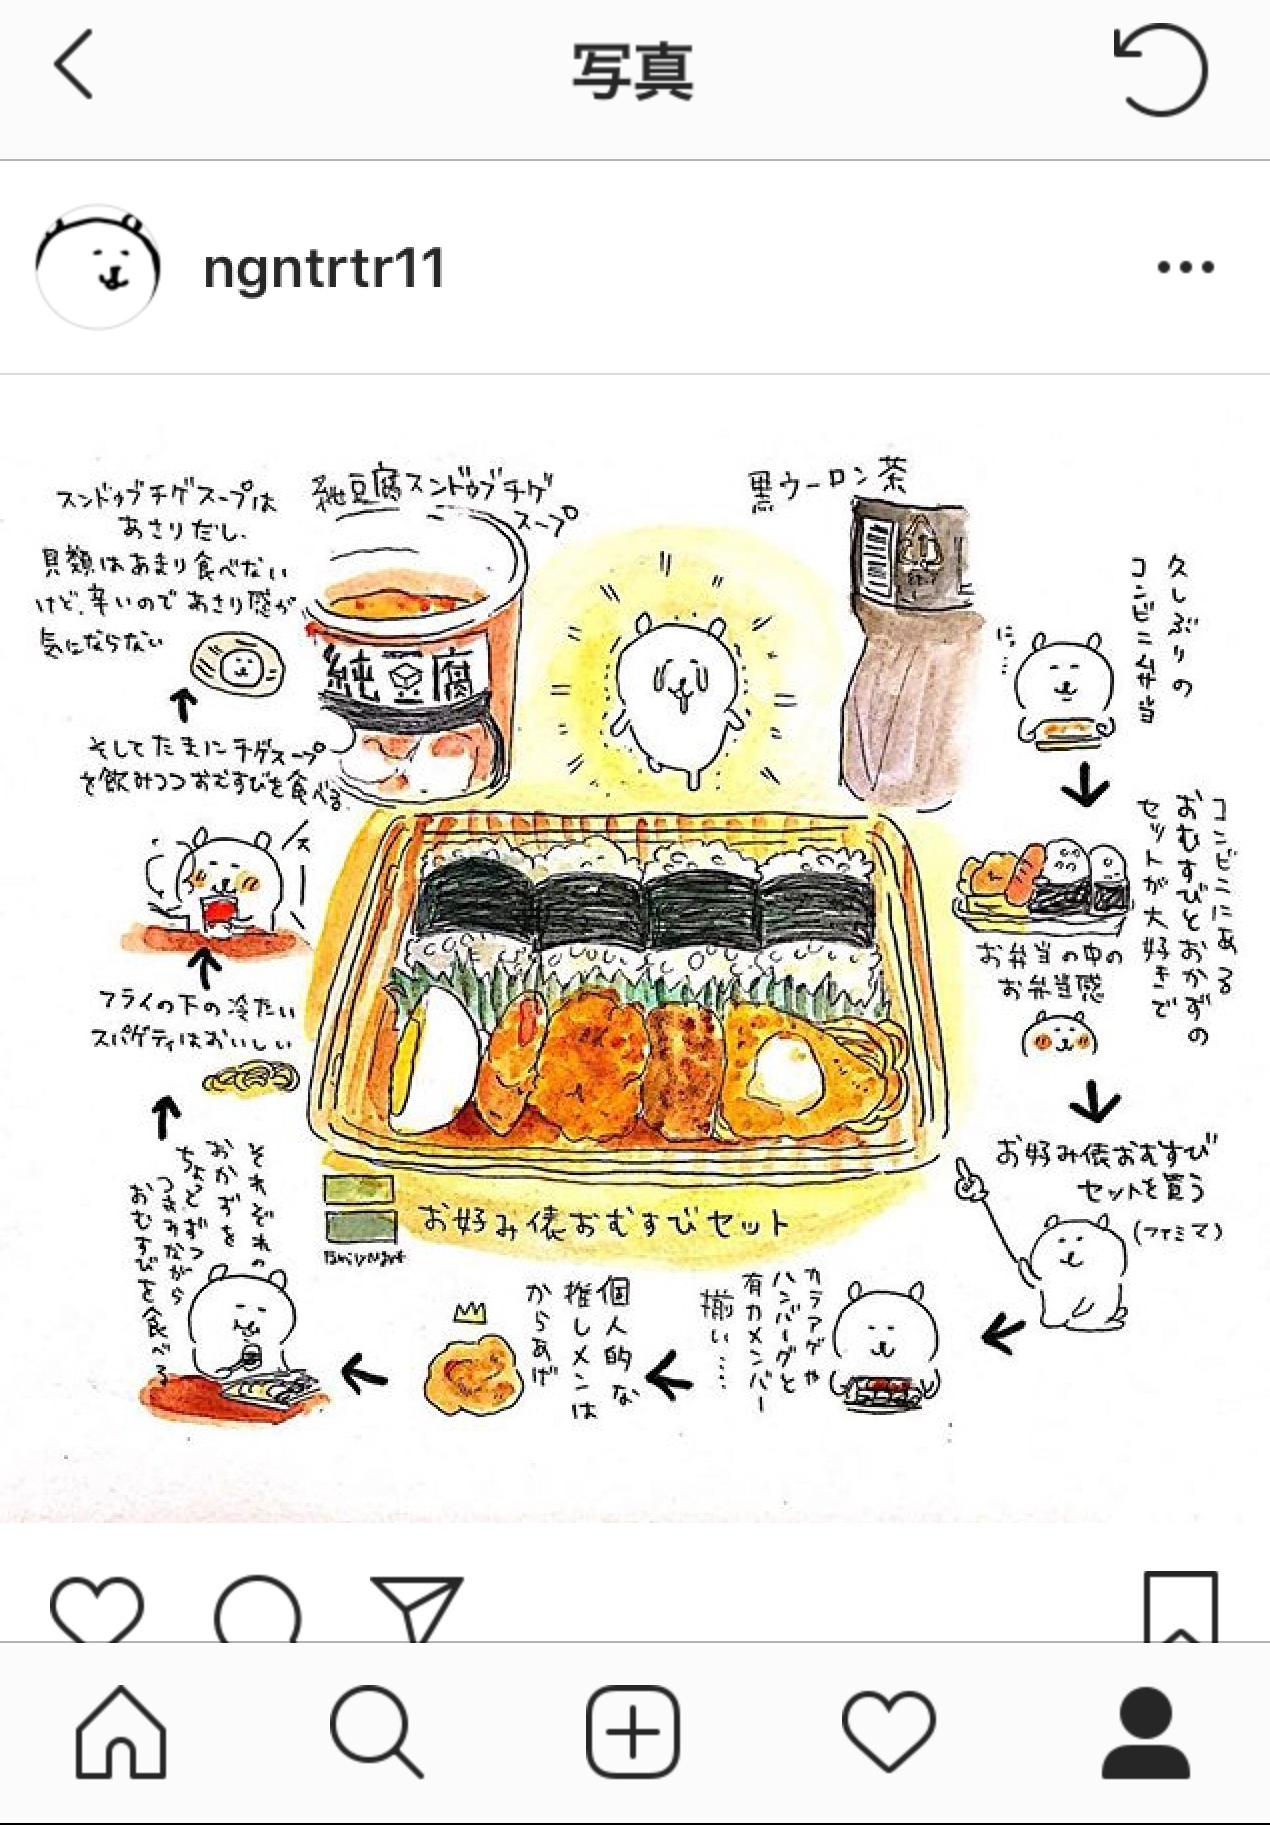 写真
ngntrtr11
純豆腐スンドゥブチゲ
スープ
黒ウーロン茶
純豆腐
久しぶりの
コンビニ弁当
にっ…
コンビニにある
おむすびとおかずの
セットが大好きで
お弁当の中の
お弁当感
お好み俵おむすび
セットを買う
(ファミマ)
カラアゲや
ハンバーグと
有力メンバー
揃い……
個人的な
推しメンは
からあげ
お好み俵おむすびセット
それぞれの
おかずを
ちょっとずつ
つまみながら
おむすびを食べる
フライの下の冷たい
スパゲティはおいしい
そしてたまにチゲスープ
を飲みつつおむすびを食べる
スンドゥブチゲスープは
あさりだし、
貝類はあまり食べない
けど、辛いのであさり感が
気にならない